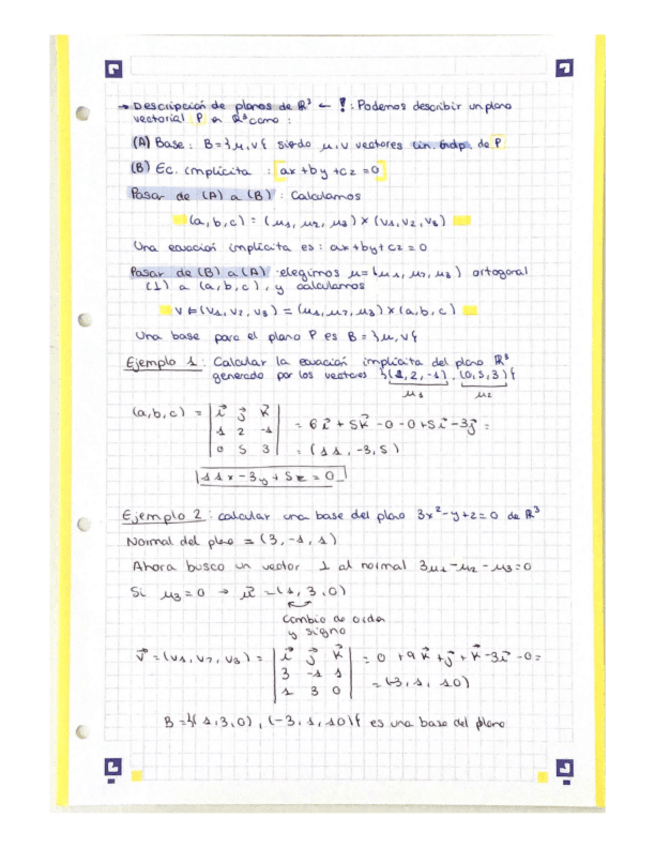 → Descripción de planos de ℝ³ ← ! : Podemos describir un plano
vectorial P en ℝ³ como :
(A) Base : B = {u, v} siendo u, v vectores lin. indp. de P
(B) Ec. implícita : ax + by + cz = 0
Pasar de (A) a (B) : Calculamos
(a, b, c) = (u1, u2, u3) × (v1, v2, v3)
Una ecuación implícita es : ax + by + cz = 0
Pasar de (B) a (A) elegimos u = (u1, u2, u3) ortogonal
(⊥) a (a, b, c), y calculamos
v = (v1, v2, v3) = (u1, u2, u3) × (a, b, c)
Una base para el plano P es B = {u, v}
Ejemplo 1 : Calcular la ecuación implícita del plano ℝ³
generado por los vectores {(1, 2, -1), (0, 5, 3)}
u1 u2
(a, b, c) = | i⃗ j⃗ k⃗ |
| 1 2 -1 | = 6i⃗ + 5k⃗ - 0 - 0 + 5i⃗ - 3j⃗ =
| 0 5 3 | = (11, -3, 5)
11x - 3y + 5z = 0
Ejemplo 2 : calcular una base del plano 3x² - y + z = 0 de ℝ³
Normal del plano = (3, -1, 1)
Ahora busco un vector ⊥ al normal 3u1 - u2 - u3 = 0
Si u3 = 0 → u⃗ = (1, 3, 0)
cambio de orden
y signo
v⃗ = (v1, v2, v3) = | i⃗ j⃗ k⃗ | = 0 + 9k⃗ + j⃗ + k⃗ - 3i⃗ - 0 =
| 3 -1 1 |
| 1 3 0 | = (-3, 1, 10)
B = {(1, 3, 0), (-3, 1, 10)} es una base del plano